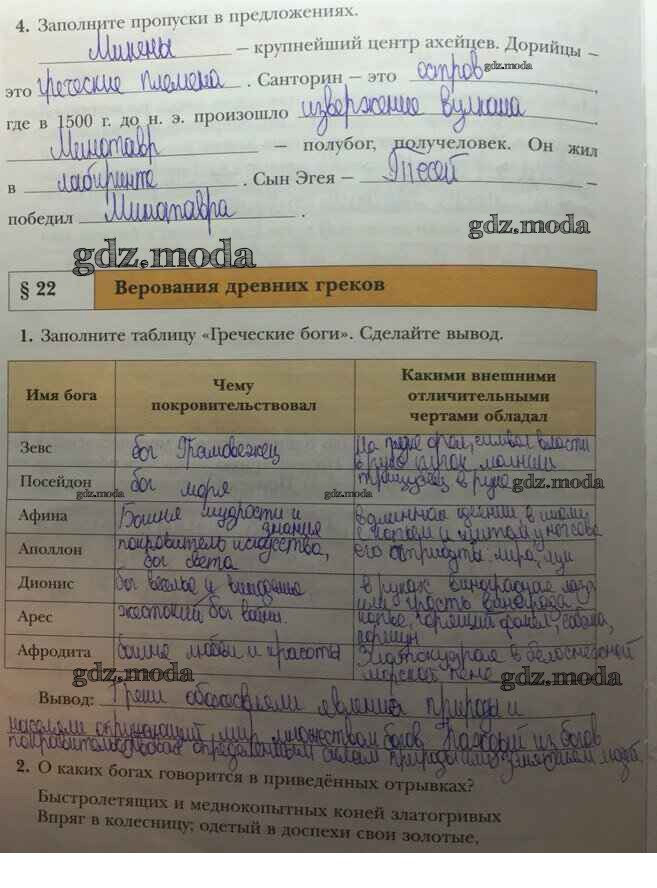 4. Заполните пропуски в предложениях.
Микены – крупнейший центр ахейцев. Дорийцы –
это греческие племена. Санторин – это остров,
gdz.moda
где в 1500 г. до н. э. произошло извержение вулкана
Минотавр – полубог, получеловек. Он жил
в лабиринте. Сын Эгея – Тесей –
победил Минотавра.
gdz.moda
gdz.moda
§ 22 Верования древних греков
1. Заполните таблицу «Греческие боги». Сделайте вывод.
Имя бога
Чему
покровительствовал
Какими внешними
отличительными
чертами обладал
Зевс бог Громовержец
власти
в руке молнии
Посейдон бог моря трезубец в руке
gdz.moda gdz.moda gdz.moda
Афина Богиня мудрости и
знания
в шлеме
с копьем и щитом у ног сова
Аполлон покровитель искусства,
бог света
его атрибуты: лира, лук
Дионис бог веселья и виноделья
в руках виноградная лоза
или гроздь винограда
Арес жестокий бог войны.
копье, горящий факел, собака,
коршун
Афродита богиня любви и красоты
Златокудрая в белоснежной
морской пене
gdz.moda gdz.moda
Вывод: Греки обожествляли явления природы и
населяли окружающий мир множеством богов. Каждый из богов
покровительствовал определенным силам природы или занятиям людей.
2. О каких богах говорится в приведённых отрывках?
Быстролетящих и меднокопытных коней златогривых
Впряг в колесницу; одетый в доспехи свои золотые,